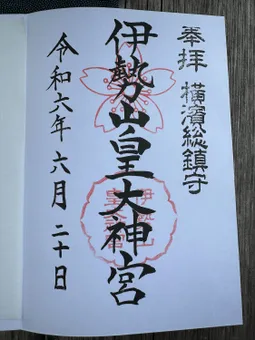 奉拝 横濱総鎮守
伊勢山皇大神宮
令和六年六月二十日